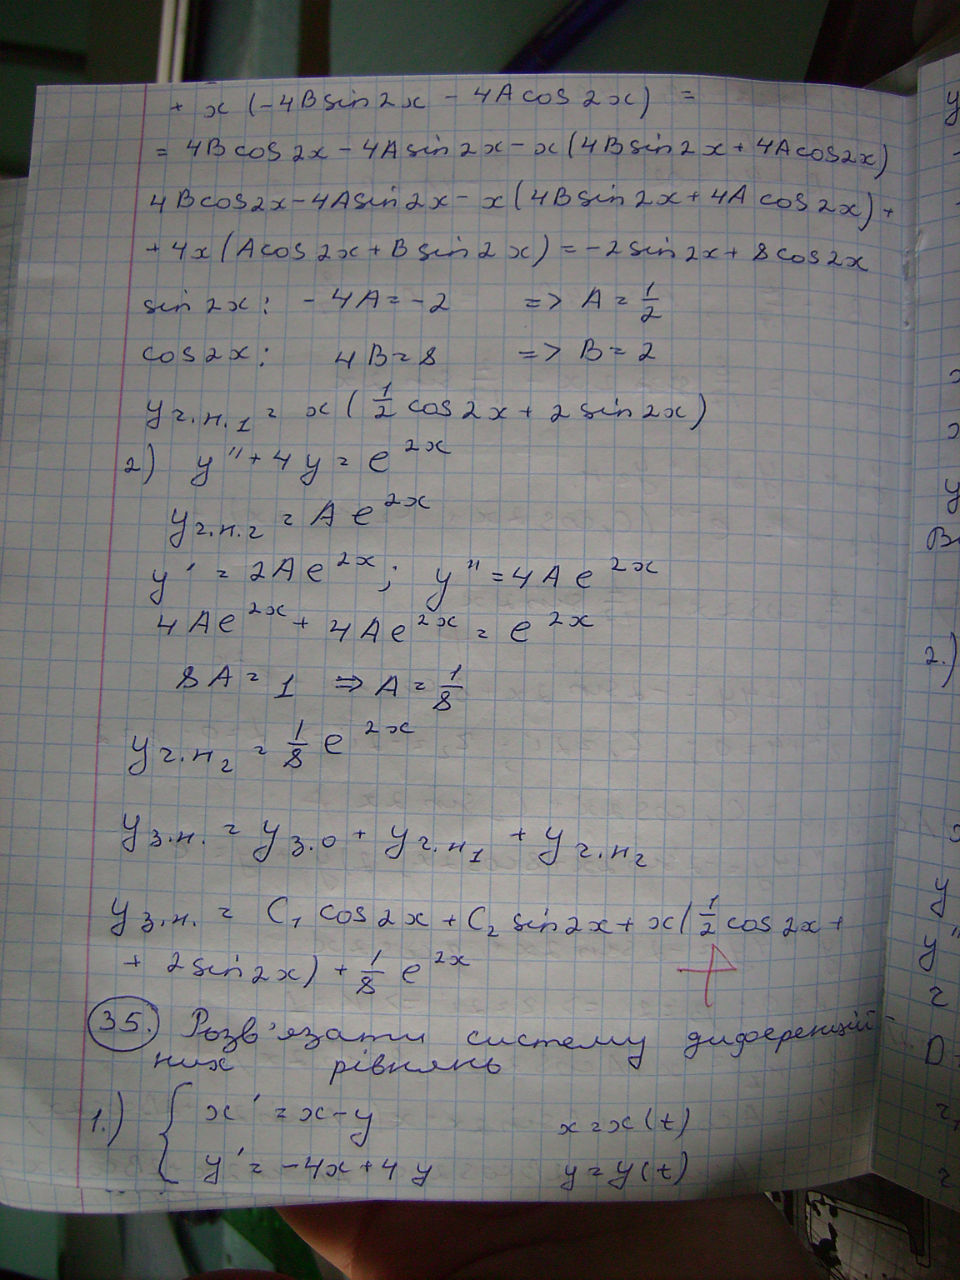 + x (-4B sin 2x - 4A cos 2x) =
= 4B cos 2x - 4A sin 2x - x (4B sin 2x + 4A cos 2x)
4B cos 2x - 4A sin 2x - x (4B sin 2x + 4A cos 2x) +
+ 4x (A cos 2x + B sin 2x) = -2 sin 2x + 8 cos 2x
sin 2x: -4A = -2 => A = 1/2
cos 2x: 4B = 8 => B = 2
y ч.н.1 = x (1/2 cos 2x + 2 sin 2x)
2) y'' + 4y = e^2x
y ч.н.2 = A e^2x
y' = 2A e^2x; y'' = 4A e^2x
4A e^2x + 4A e^2x = e^2x
8A = 1 => A = 1/8
y ч.н2 = 1/8 e^2x
y з.н. = y з.о + y ч.н1 + y ч.н2
y з.н. = C1 cos 2x + C2 sin 2x + x (1/2 cos 2x +
+ 2 sin 2x) + 1/8 e^2x
35. Розв'язати систему диференцій-
них рівнянь
1.) { x' = x - y x = x(t)
y' = -4x + 4y y = y(t)